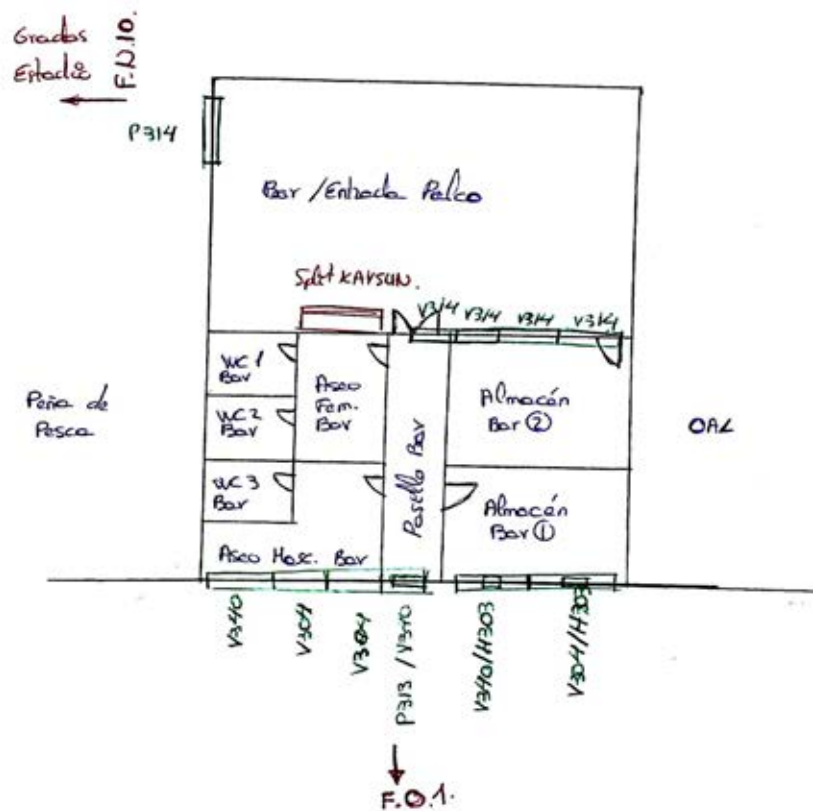 Gradas
Estadio
F.N.10.
P314
Bar / Entrada Palco
Split KAYSUN.
V314
V314
V314
V314
WC 1
Bar
WC 2
Bar
WC 3
Bar
Aseo
Fem.
Bar
Pasillo Bar
Almacén
Bar ②
Almacén
Bar ①
Aseo Masc. Bar
Peña de
Pesca
OAL
V340
V304
V304
P313 / V340
V340/H303
V304/H303
F.O.1.